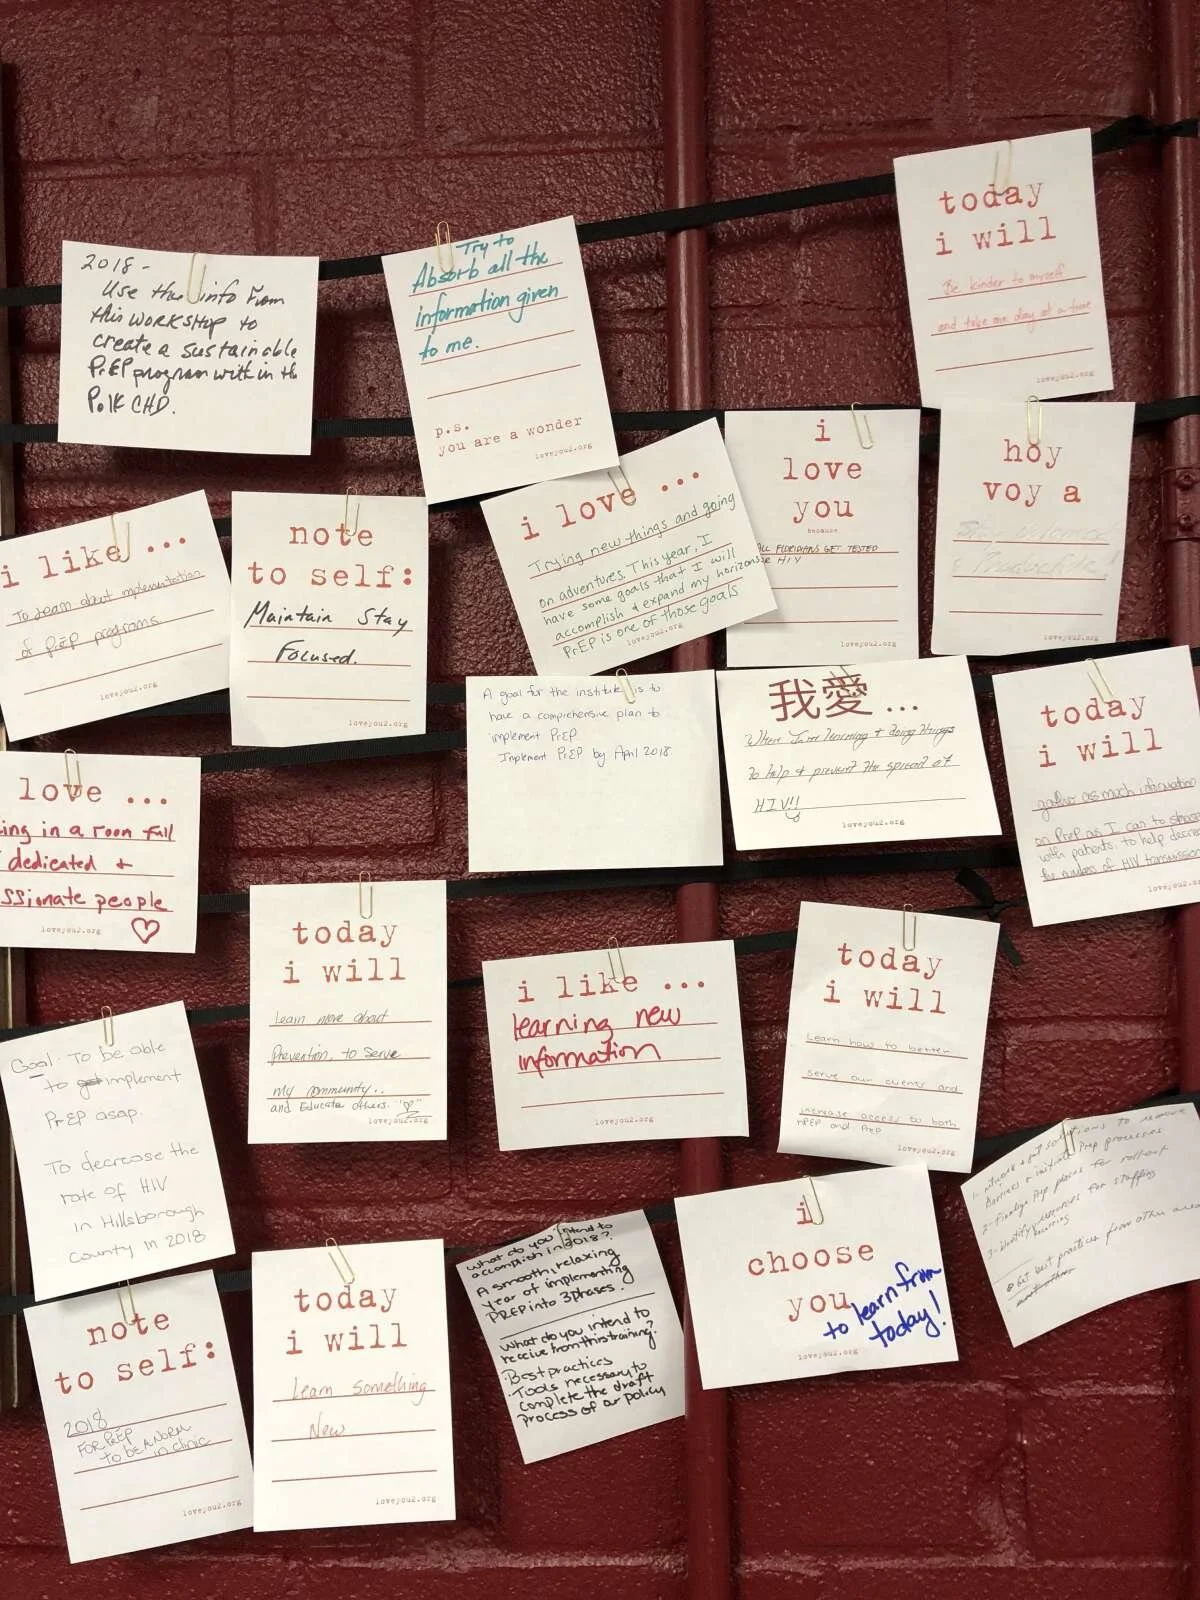 today
i will
Be kinder to myself
and take one day at a time
loveyou2.org
2018 -
Use the info From
this WORKSHOP to
create a sustainable
PrEP program within the
Polk CHD.
Try to
Absorb all the
information given
to me.
p.s.
you are a wonder
loveyou2.org
i love ...
Trying new things and going
on adventures. This year, I
have some goals that I will
accomplish & expand my horizons
PrEP is one of those goals
loveyou2.org
i
love
you
because
ALL FLORIDIANS GET TESTED
HIV
loveyou2.org
hoy
voy a
& Productive!
loveyou2.org
i like ...
To learn about implementation
of PrEP programs
loveyou2.org
note
to self:
Maintain Stay
Focused.
loveyou2.org
A goal for the institute is to
have a comprehensive plan to
implement PrEP
Implement PrEP by April 2018
我愛...
When I am learning & doing things
to help & prevent the spread of
HIV!!
loveyou2.org
today
i will
gather as much information
on PrEP as I can to share
with patients, to help decrease
the numbers of HIV transmission
loveyou2.org
love ...
ing in a room full
dedicated &
ssionate people
loveyou2.org
today
i will
Learn more about
Prevention, to serve
my community..
and Educate others.
loveyou2.org
i like ...
learning new
information
loveyou2.org
today
i will
Learn how to better
serve our clients and
increase access to both
nPEP and PrEP
loveyou2.org
Goal: To be able
to implement
PrEP asap.
To decrease the
rate of HIV
in Hillsborough
County in 2018
1- network & get solutions to remove
barriers & initiate Prep processes
2- Finalize Prep plans for rollout
3- Identify resources for staffing
Get best practices from other areas
note
to self:
2018
FOR PrEP
to be A NORM
in clinic
loveyou2.org
today
i will
Learn something
New
loveyou2.org
What do you intend to
accomplish in 2018?
A smooth, relaxing
year of implementing
PREP into 3 phases.
What do you intend to
receive from this training?
· Best practices
· Tools necessary to
complete the draft
process of our policy
i
choose
you
to learn from
today!
loveyou2.org